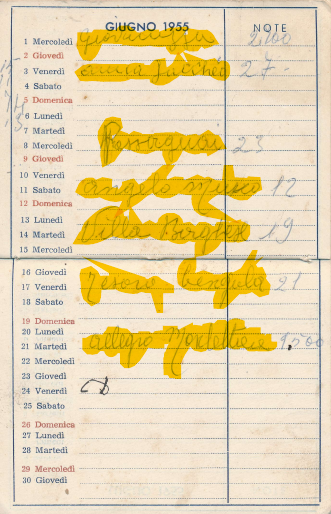 GIUGNO 1955 NOTE
1 Mercoledì 2,100
2 Giovedì
3 Venerdì 27-
4 Sabato
5 Domenica
6 Lunedì
7 Martedì
8 Mercoledì 23
9 Giovedì
10 Venerdì
11 Sabato angelo musco 12
12 Domenica
13 Lunedì
14 Martedì Villa Borghese 19
15 Mercoledì
16 Giovedì
17 Venerdì 21
18 Sabato
19 Domenica
20 Lunedì
21 Martedì allegro 1,500
22 Mercoledì
23 Giovedì
24 Venerdì
25 Sabato
26 Domenica
27 Lunedì
28 Martedì
29 Mercoledì
30 Giovedì